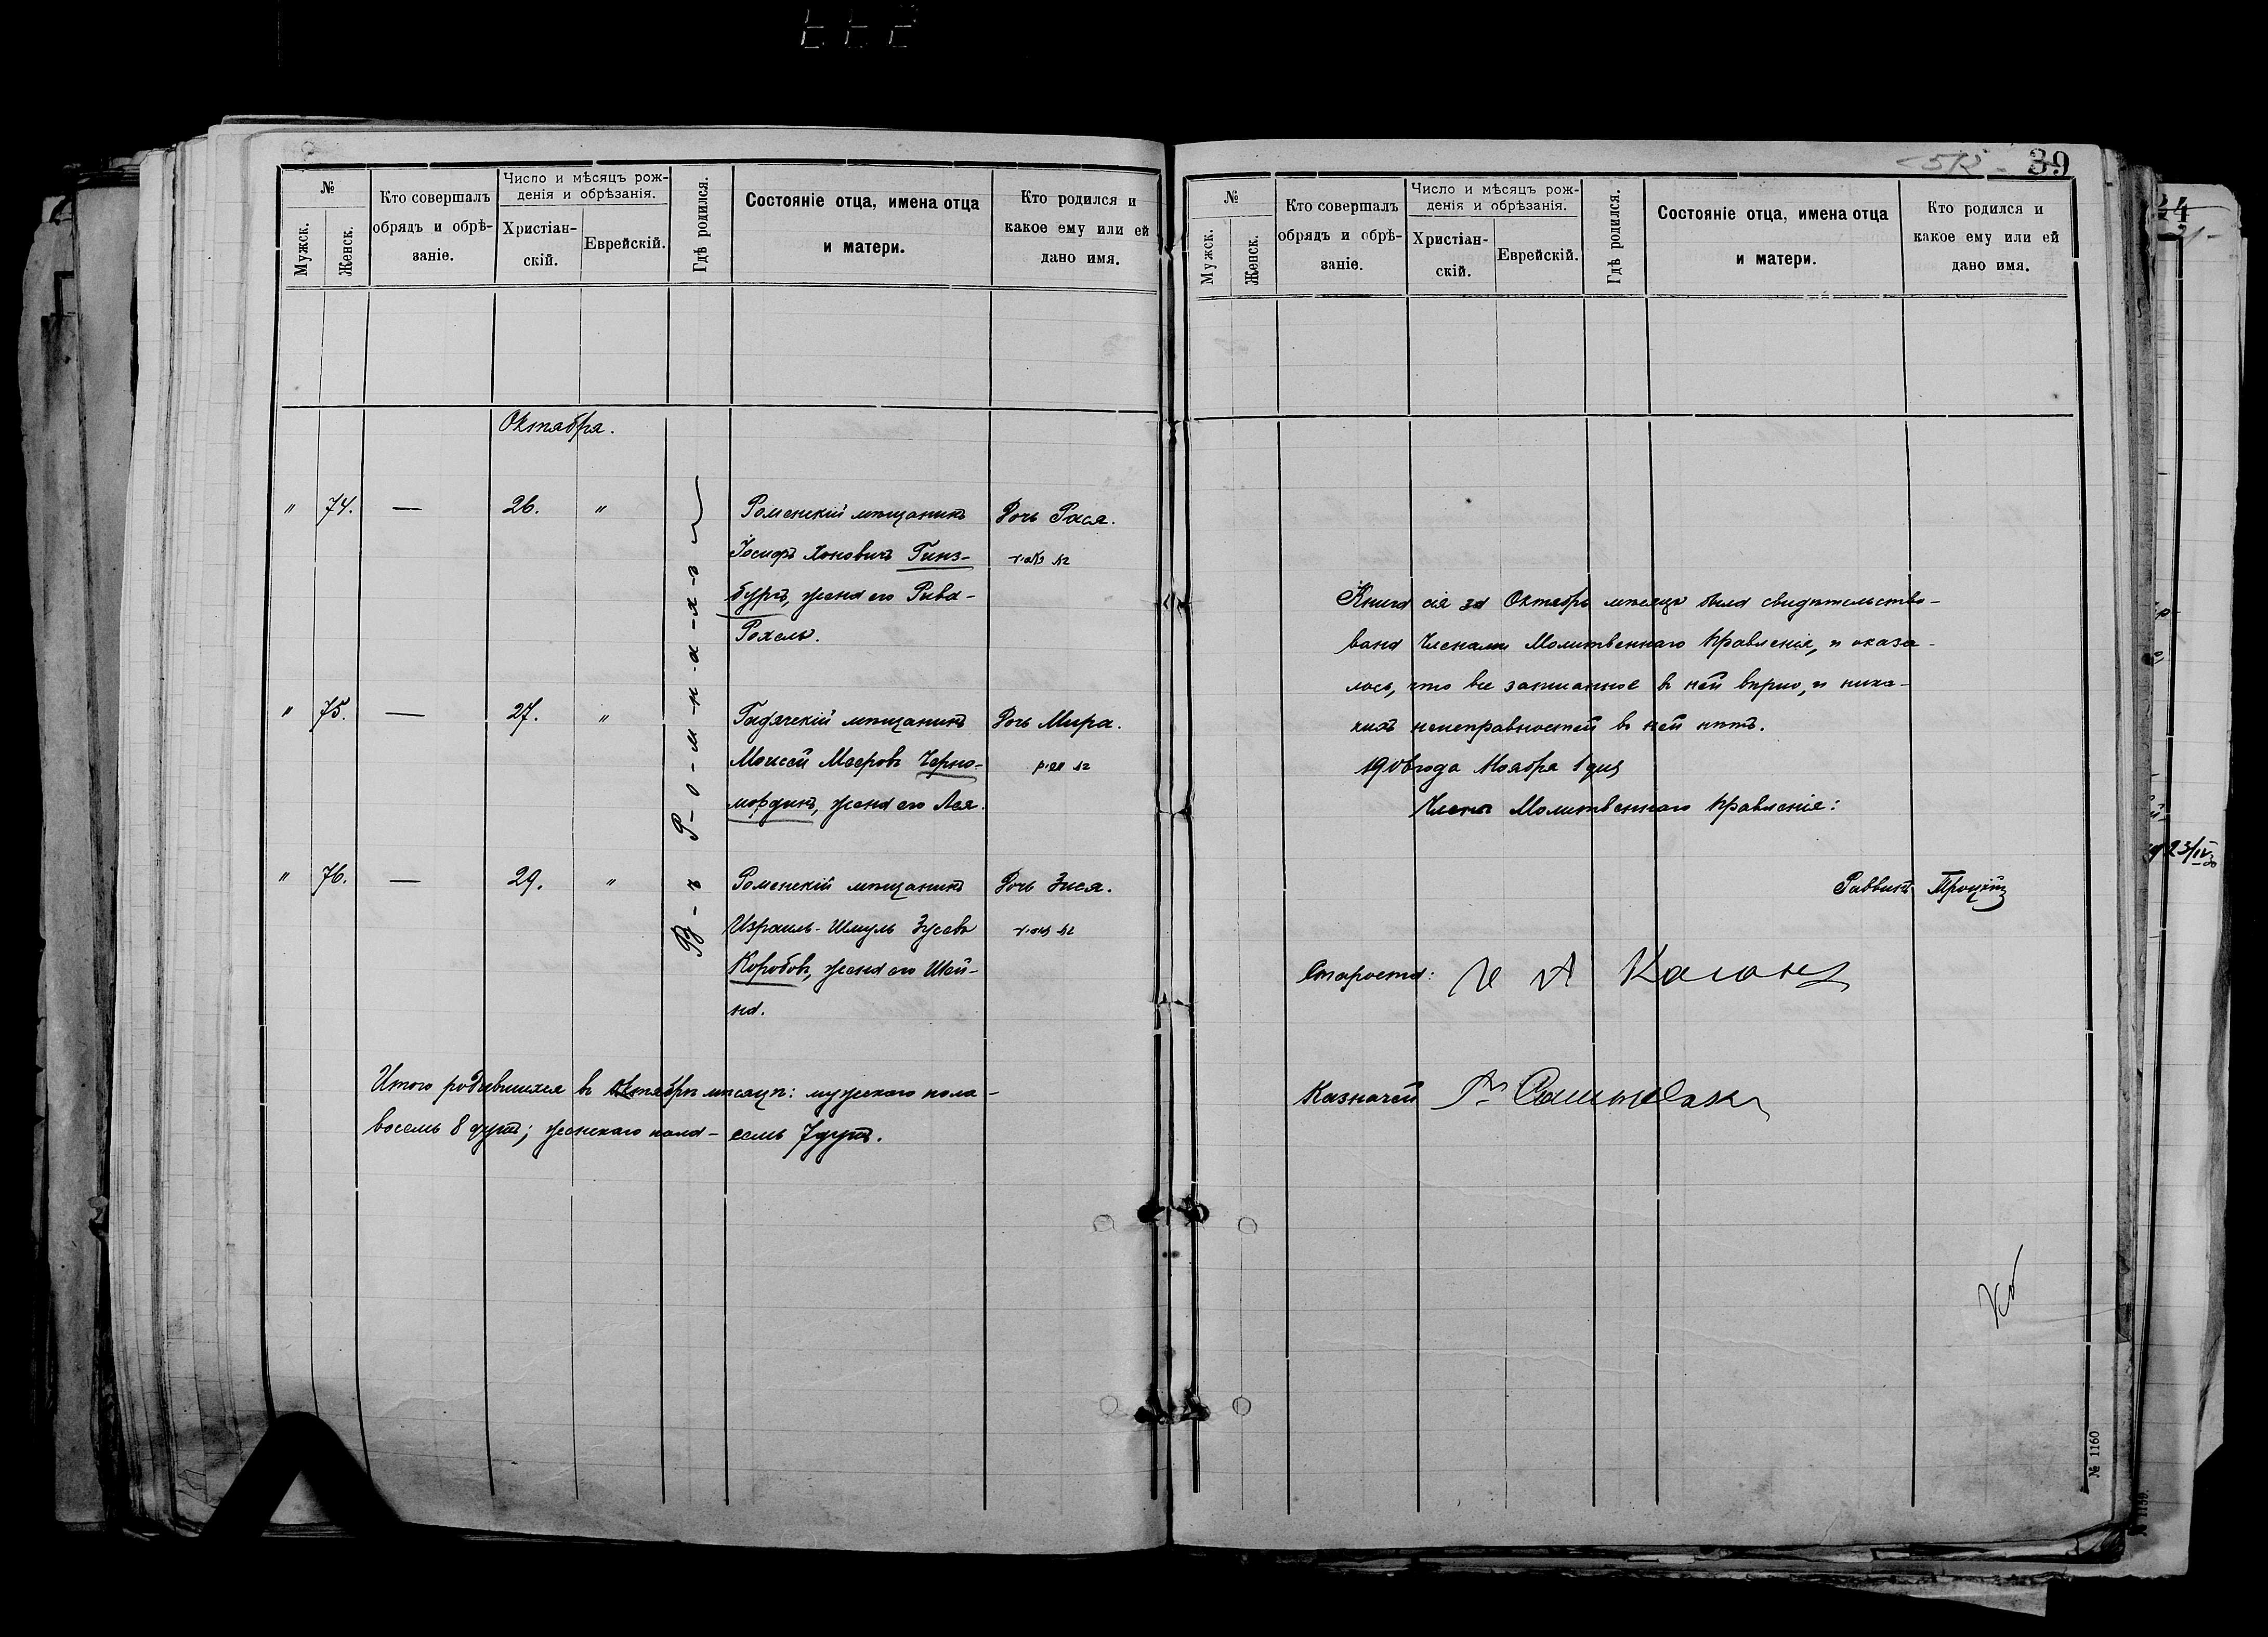 №
Мужск.
Женск.
Кто совершалъ
обрядъ и обрѣ-
заніе.
Число и мѣсяцъ рож-
денія и обрѣзанія.
Христіан-
скій.
Еврейскій.
Гдѣ родился.
Состояніе отца, имена отца
и матери.
Кто родился и
какое ему или ей
дано имя.
Октября.
Въ Ромнахъ
" 74. — 26. "
Роменскій мѣщанинъ
Іосифъ Хоновичъ Гинз-
бургъ, жена его Рива-
Рохель.
Дочь Рася.
" 75. — 27. "
Гадячскій мѣщанинъ
Моисей Мееровъ Черно-
мордикъ, жена его Лея.
Дочь Мира.
" 76. — 29. "
Роменскій мѣщанинъ
Израиль-Шмуль Зусевъ
Коробовъ, жена его Шей-
на.
Дочь Зися.
Итого родившихся в Октябрѣ мѣсяцѣ: мужескаго пола -
восемь 8 душъ; женскаго пола - семь 7 душъ.
39
№
Мужск.
Женск.
Кто совершалъ
обрядъ и обрѣ-
заніе.
Число и мѣсяцъ рож-
денія и обрѣзанія.
Христіан-
скій.
Еврейскій.
Гдѣ родился.
Состояніе отца, имена отца
и матери.
Кто родился и
какое ему или ей
дано имя.
Книга сія за Октябрь мѣсяцъ была свидѣтельство-
вана Членами Молитвеннаго Правленія, и оказа-
лось, что все записанное въ ней вѣрно, и ника-
кихъ неисправностей въ ней нѣтъ.
1906 года Ноября 1 дня
Члены Молитвеннаго Правленія:
Раввинъ Троцкій
Староста: Каганъ
Казначей
№ 1160